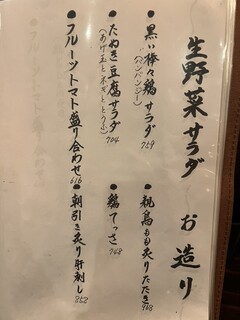 生野菜サラダ
●黒い棒々鶏サラダ
(バンバンジー)
759
●たぬき豆腐サラダ
(あげ玉とネギととうふ)
704
●フルーツトマト盛り合わせ
616
お造り
●親鳥もも炙りたたき
●鶏てっさ
748
●朝引き炙り肝刺し
858